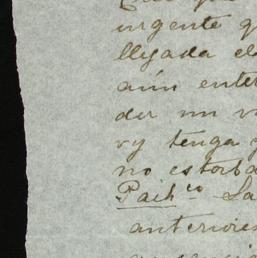 urgente q
llegada el
aún enter
der un v
vy tenga
no estorba
Pach.co Sa
anteriores